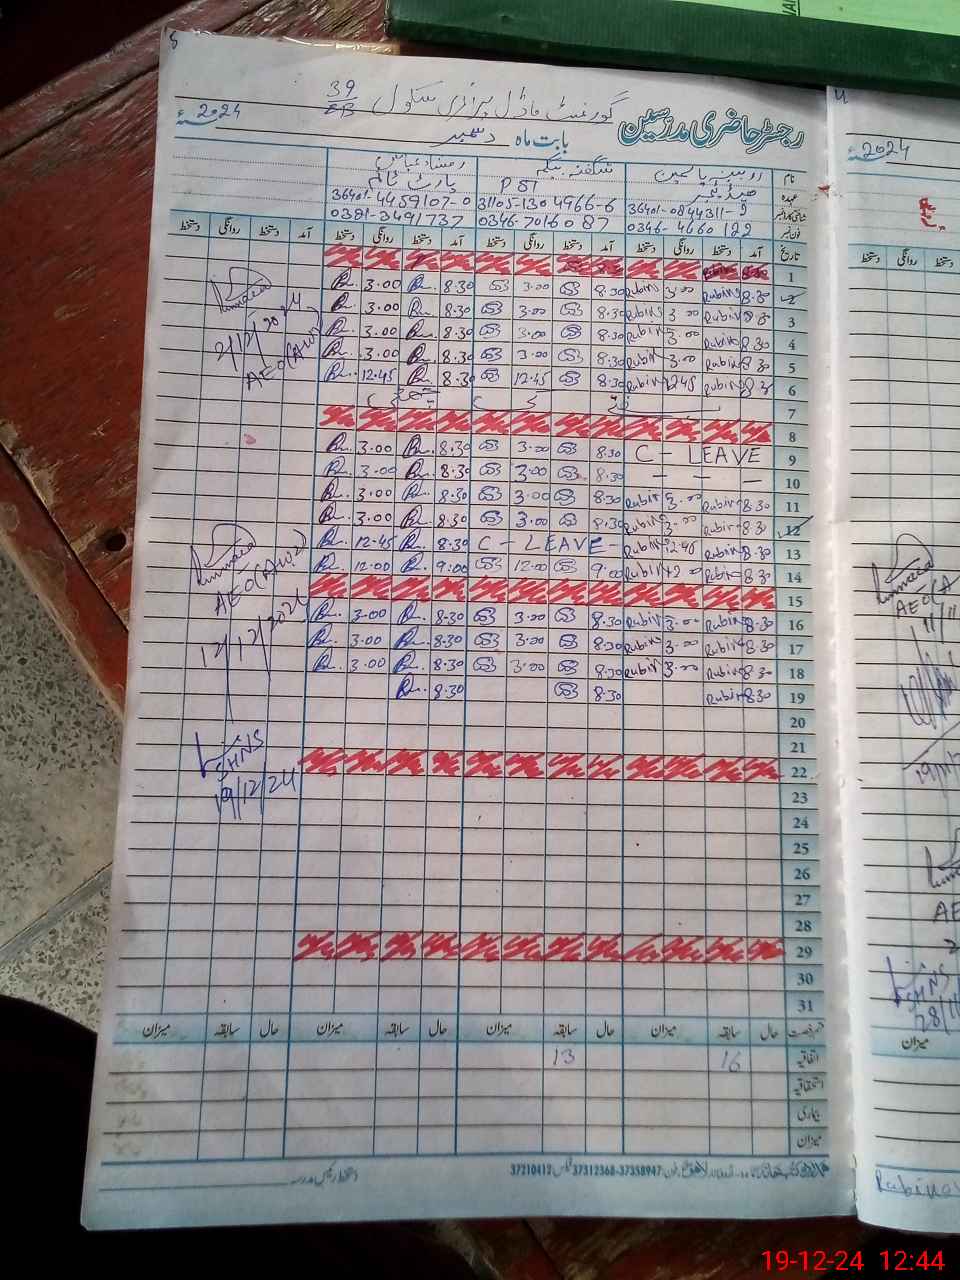 رجسٹر حاضری مدرسین
گورنمنٹ ماڈل پرائمری سکول 39
بابت ماہ دسمبر 2024ء
نام روبینہ یاسمین شگفتہ بیگم
عہدہ PST پارٹ ٹائم
شناختی کارڈ نمبر 36401-0844311-2 31105-1304966-6 36401-4459107-0
فون نمبر 0346-4660122 0346-7016087 0381-3491737
تاریخ آمد دستخط روانگی دستخط آمد دستخط روانگی دستخط آمد دستخط روانگی دستخط آمد دستخط روانگی دستخط
1
2 8.30 Rubin 3.00 Rubin 8.30 3.00 8.30 3.00
3 8.30 Rubin 3.00 Rubin 8.30 3.00 8.30 3.00
4 8.30 Rubin 3.00 Rubin 8.30 3.00 8.30 3.00
5 8.30 Rubin 3.00 Rubin 8.30 3.00 8.30 3.00
6 8.30 Rubin 12.45 Rubin 8.30 12.45 8.30 12.45
7
8
9 C - LEAVE 8.30 3.00 8.30 3.00
10 - - - 8.30 3.00 8.30 3.00
11 8.30 Rubin 3.00 Rubin 8.30 3.00 8.30 3.00
12 8.30 Rubin 3.00 Rubin 8.30 3.00 8.30 3.00
13 8.30 Rubin 12.45 Rubin C - LEAVE - 8.30 12.45
14 8.30 Rubin 12.00 Rubin 9.00 12.00 9.00 12.00
15
16 8.30 Rubin 3.00 Rubin 8.30 3.00 8.30 3.00
17 8.30 Rubin 3.00 Rubin 8.30 3.00 8.30 3.00
18 8.30 Rubin 3.00 Rubin 8.30 3.00 8.30 3.00
19 8.30 Rubin 8.30 8.30
20
21
22
23
24
25
26
27
28
29
30
31
2/12/2024
AEO(AW)
AEO(AW)
12/12/2024
SHNS
19/12/24
قسم رخصت حال سابقہ میزان حال سابقہ میزان حال سابقہ میزان حال سابقہ میزان
اتفاقیہ 16 13
استحقاقیہ
بیماری
میزان
37210412 37312368-37358947
دستخط رئیس مدرسہ
2024ء
دستخط روانگی دستخط
AEO(A
11/11
19/11
AE
SHNS
28/11
میزان
Rubina
19-12-24 12:44